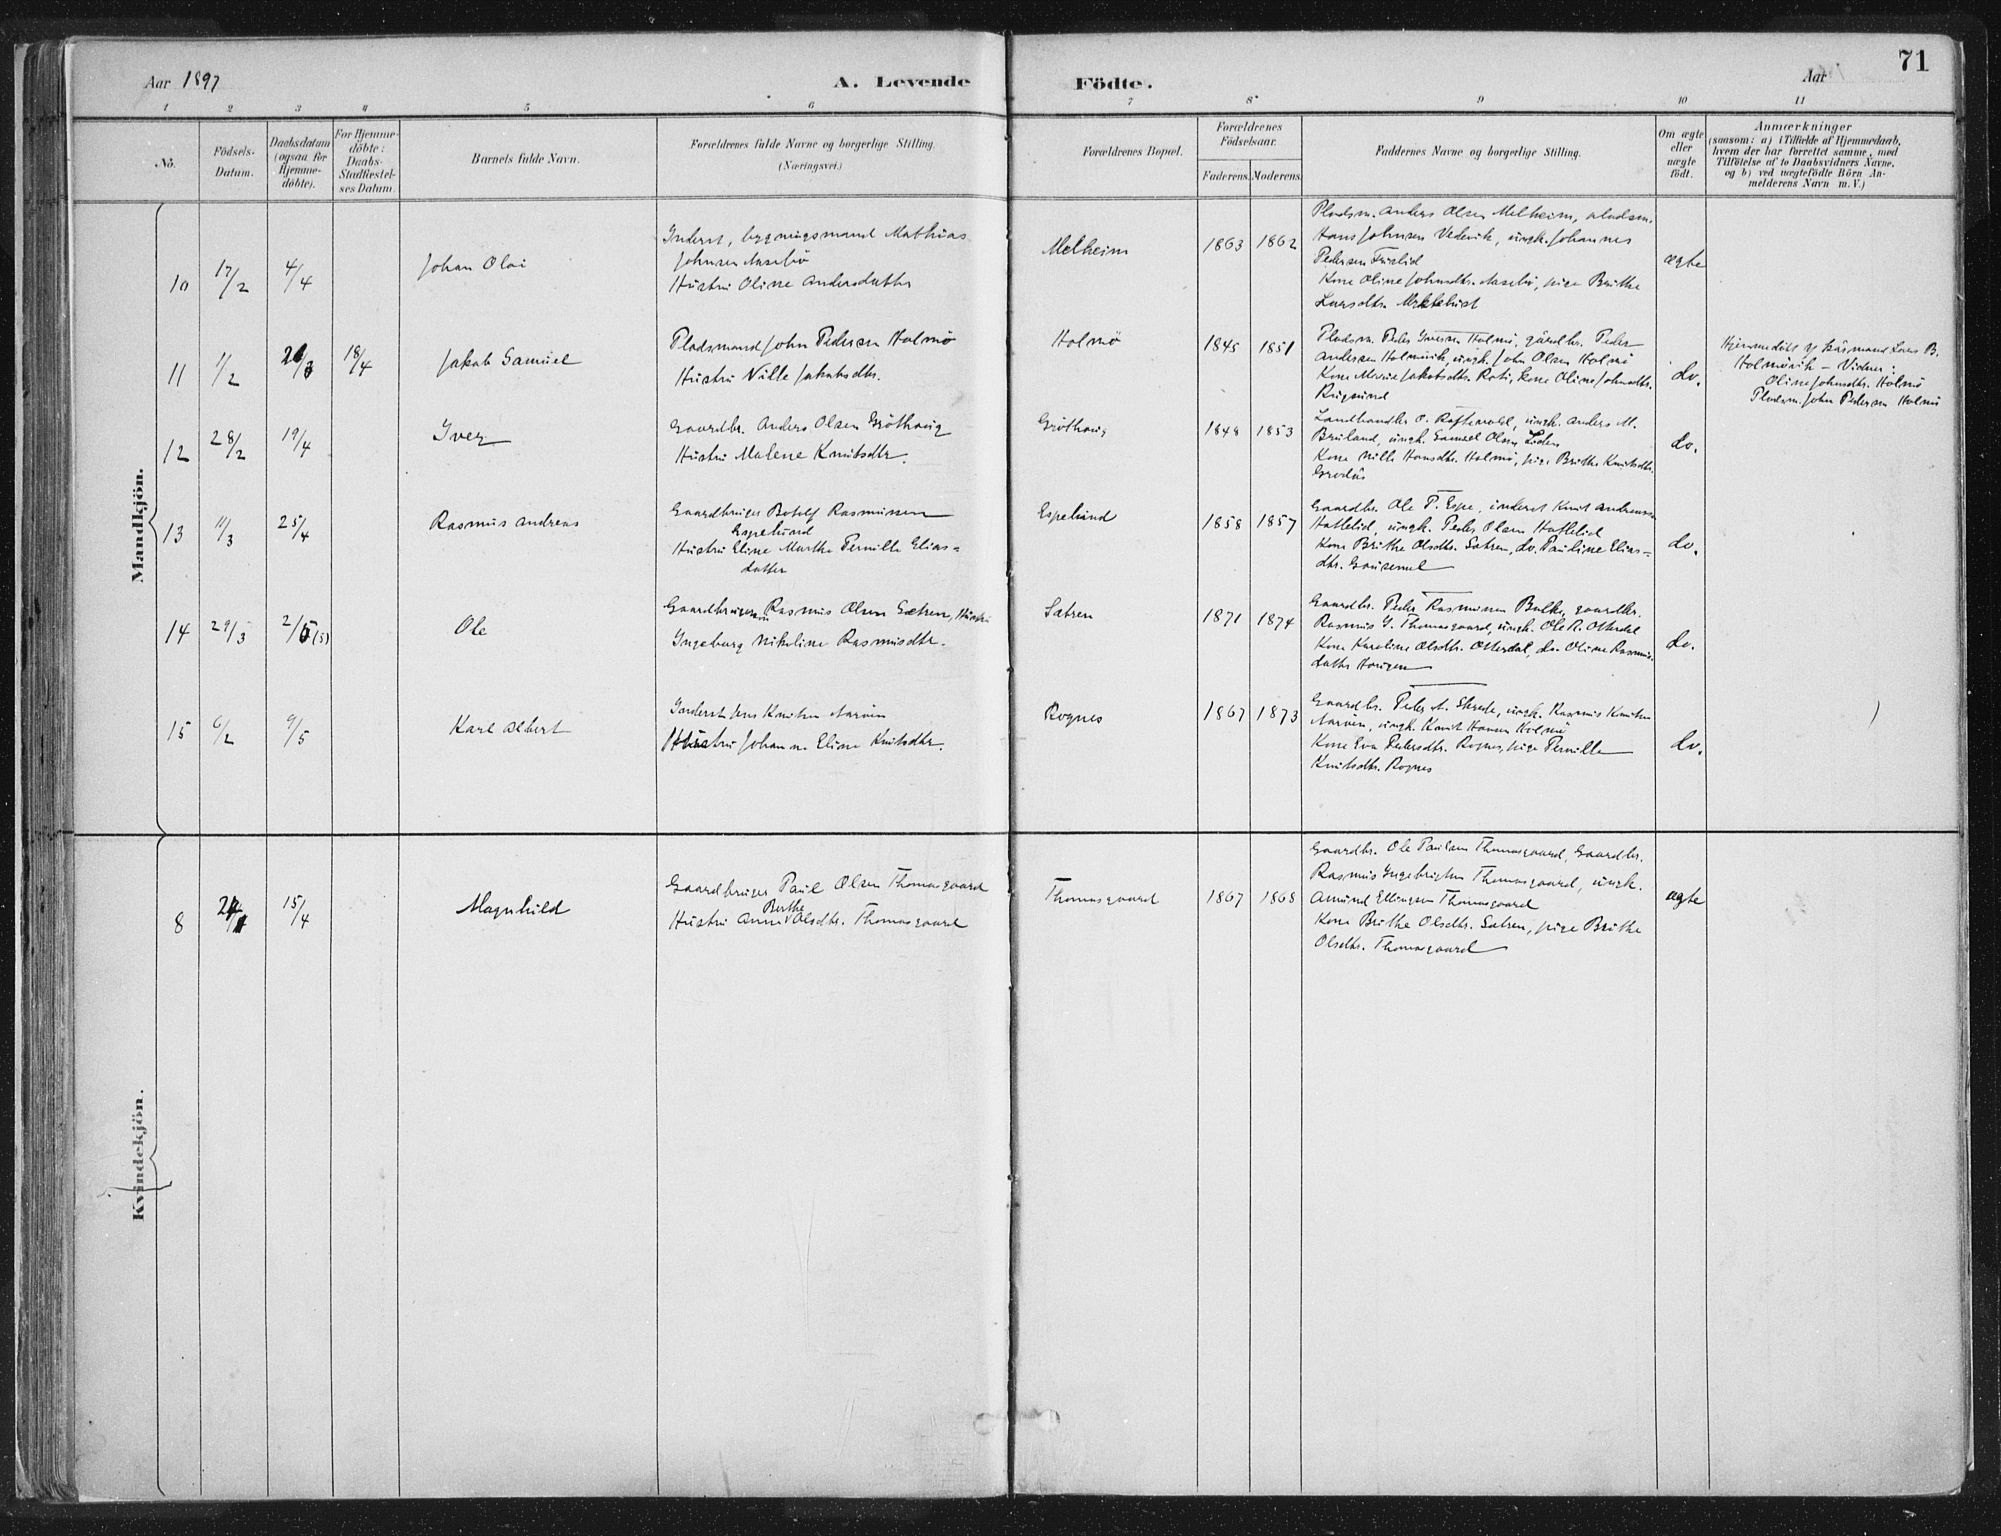 71
Aar 1897
A. Levende Födte.
Aar
1 2 3 4 5 6 7 8 9 10 11
No.
Födsels-Datum.
Daabsdatum (ogsaa for Hjemme-döbte).
For Hjemme-döbte: Daabs-Stadfæstel-ses Datum.
Barnets fulde Navn.
Forældrenes fulde Navne og borgerlige Stilling.
(Næringsvei.)
Forældrenes Bopæl.
Forældrenes Födselsaar.
Faderens. Moderens.
Faddernes Navne og borgerlige Stilling.
Om ægte eller uægte födt.
Anmærkninger
(saasom: a) i Tilfælde af Hjemmedaab,
hvem der har forrettet samme, med
Tilföielse af to Daabsvidners Navne,
og b) ved uægtefödte Börn An-
melderens Navn m. V.)
Mandkjön.
10 17/2 4/4 Johan Olai
Inderst, bygningsmand Mathias
Johnsen Naseby
Hustru Oline Andersdatter
Melheim 1863 1862
Pladsm. Anders Olsen Melheim, pladsm.
Hans Johnsen Vedvik, ungk. Johannes
Pedersen
Kone Oline Johnsdtr. pige Brithe
Larsdtr. Myklebust
ægte
11 1/2 18/4 Jakob Samuel
Pladsmand John Pedersen Holmö
Hustru Nille Jakobsdtr.
Holmö 1845 1851
Pladsm. Peder Holmö, gardbr. Peder
Andersen Holmövik, ungk. John Olsen Holmö
Kone Jakobsdtr. kone Oline Johnsdtr.
Rugsund
do.
Hjemmedöbt af Lars B.
Holmövik - Vidner:
Oline Johnsdtr. Holmö
Pladsm. John Pedersen Holmö
12 28/2 19/4 Iver
Gaardbr. Anders Olsen Gröthaug
Hustru Malene Knutsdtr.
Gröthaug 1848 1853
Landhandler O. ungk. Anders M.
ungk. Samuel Olsen
Kone Nille Hansdtr. Holmö, pige Brithe Knutsdtr.
do.
13 11/3 25/4 Rasmus Andreas
Gaardbruger Botolf Rasmussen
Hustru Eline Marthe Pernille Elias=
datter
Espelund 1858 1857
Gaardbr. Ole P. Espe, inderst Knut Andreassen
Hatlelid, ungk. Peder Olsen Hatlelid
Kone Brithe Olsdtr. Satren, do. Pauline Elias=
dtr. Gausemel
do.
14 29/3 2/5 (5) Ole
Gaardbruger Rasmus Olsen Sætren, Hustru
Ingeborg Nikoline Rasmusdtr.
Satren 1871 1874
Gaardbr. Peder Rasmussen Balke, gaardbr.
Rasmus I. Thomasgaard, ungk. Ole R. Otterdal
Kone Karoline Olsdtr. Otterdal, do. Oline Rasmus-
datter Haugen
do.
15 6/2 9/5 Karl Albert
Inderst Jens Knutsen Naröen
Hustru Johanne Eline Knutsdtr.
Rognes 1867 1873
Gaardbr. Peder A. Skrede, ungk. Rasmus Knutsen
Naröen, ungk. Knut Hansen Holmö
Kone Eva Pedersdtr. Rognes, pige Pernille
Knutsdtr. Rognes
do.
Kvindekjön.
8 15/4 Magnhild
Gaardbruger Paul Olsen Thomasgaard
Hustru Anne Berthe Olsdtr. Thomasgaard
Thomasgaard 1867 1868
Gaardbr. Ole Paulsen Thomasgaard, Gaardbr.
Rasmus Ingebrigtsen Thomasgaard, ungk.
Amund Ellingsen Thomasgaard
Kone Brithe Olsdtr. Satren, pige Brithe
Olsdtr. Thomasgaard
ægte